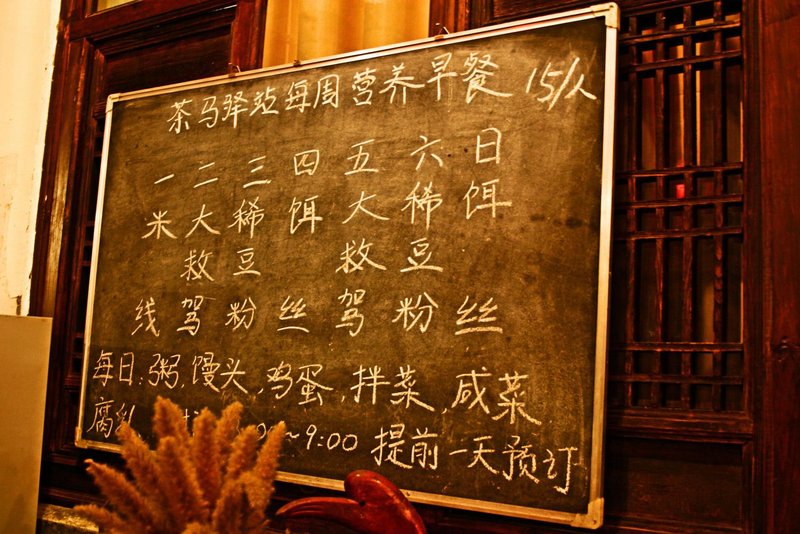 茶马驿站每周营养早餐 15/人
一 二 三 四 五 六 日
米 大 稀 饵 大 稀 饵
救 豆 救 豆
线 驾 粉 丝 驾 粉 丝
每日:粥,馒头,鸡蛋,拌菜,咸菜
腐 ~9:00 提前一天预订